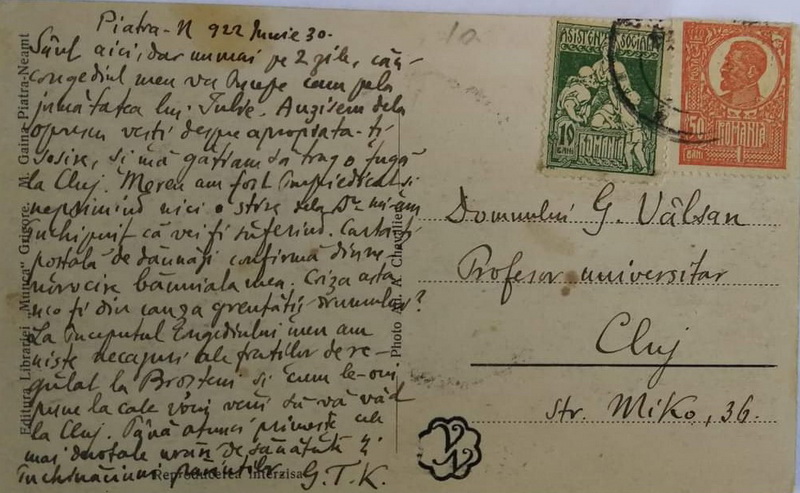 Piatra-N 922 Iunie 30.
Sânt aici, dar numai pe 2 zile, căci
congediul meu va începe cam pela
jumătatea lui Iulie. Auzisem dela
vești despre apropiata-ți
sosire, și mă gătiam să trag o fugă
la Cluj. Mereu am fost împiedicat și
neprimind nici o știre dela Dta mi-am
închipuit că vei fi suferind. Carta ți
poștală de dăunăzi confirmă din ne-
norocire bănuiala mea. Criza asta
n'o fi din cauza greutății drumului?
La începutul congediului meu am
niște necazuri ale fraților de re-
gulat la Broșteni și cum le-oiu
pune la cale voiu veni să vă văd
la Cluj. Până atunci primește cele
mai devotate urări de sănătate și
închinăciuni părinților G.T.K.
Editura Librăriei „Munca" Grigore M. Gaina Piatra-Neamt
Photo Ad. A. Chevallier
Reproducerea interzisa
ASISTENȚA SOCIALĂ
10
BANI
ROMANIA
50
BANI
ROMANIA
1
Domnului G. Vâlsan
Profesor universitar
Cluj
str. Miko, 36.